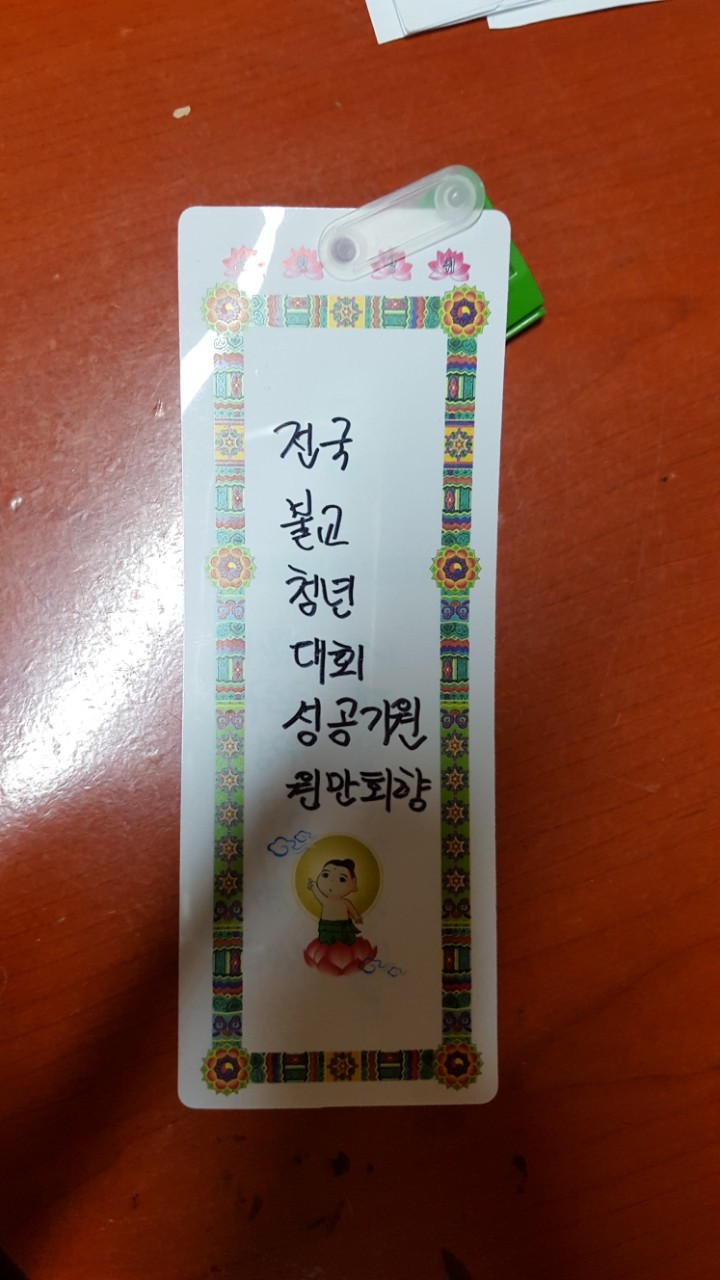 전국
불교
청년
대회
성공기원
원만회향